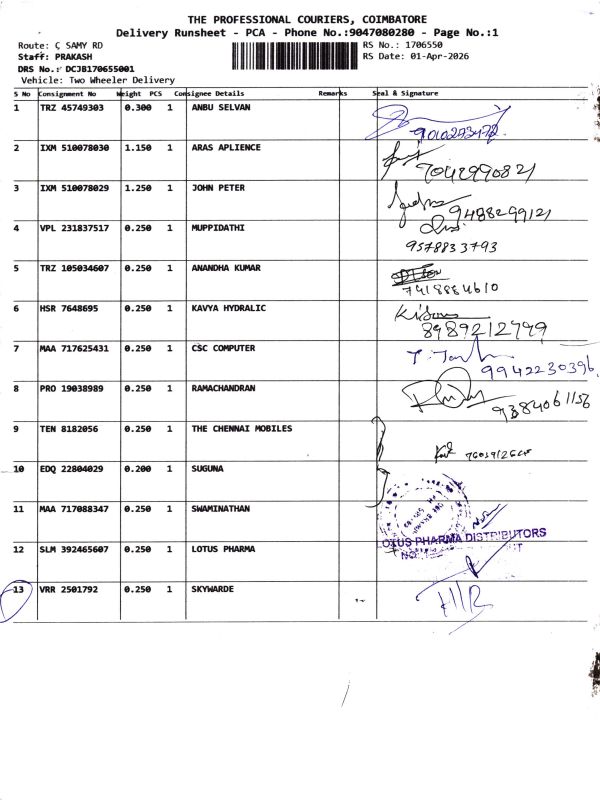 THE PROFESSIONAL COURIERS, COIMBATORE
Delivery Runsheet - PCA - Phone No.:9047080280 - Page No.:1
Route: C SAMY RD RS No.: 1706550
Staff: PRAKASH RS Date: 01-Apr-2026
DRS No.: DCJB170655001
Vehicle: Two Wheeler Delivery
S No Consignment No Weight PCS Consignee Details Remarks Seal & Signature
1 TRZ 45749303 0.300 1 ANBU SELVAN
2 IXM 510078030 1.150 1 ARAS APLIENCE
7042990821
3 IXM 510078029 1.250 1 JOHN PETER
9488299121
4 VPL 231837517 0.250 1 MUPPIDATHI
9578833793
5 TRZ 105034607 0.250 1 ANANDHA KUMAR
7418884610
6 HSR 7648695 0.250 1 KAVYA HYDRALIC
8989212799
7 MAA 717625431 0.250 1 CSC COMPUTER
9942230396
8 PRO 19038989 0.250 1 RAMACHANDRAN
9384061156
9 TEN 8182056 0.250 1 THE CHENNAI MOBILES
10 EDQ 22804029 0.200 1 SUGUNA
11 MAA 717088347 0.250 1 SWAMINATHAN
LOTUS PHARMA DISTRIBUTORS
12 SLM 392465607 0.250 1 LOTUS PHARMA
13 VRR 2501792 0.250 1 SKYWARDE